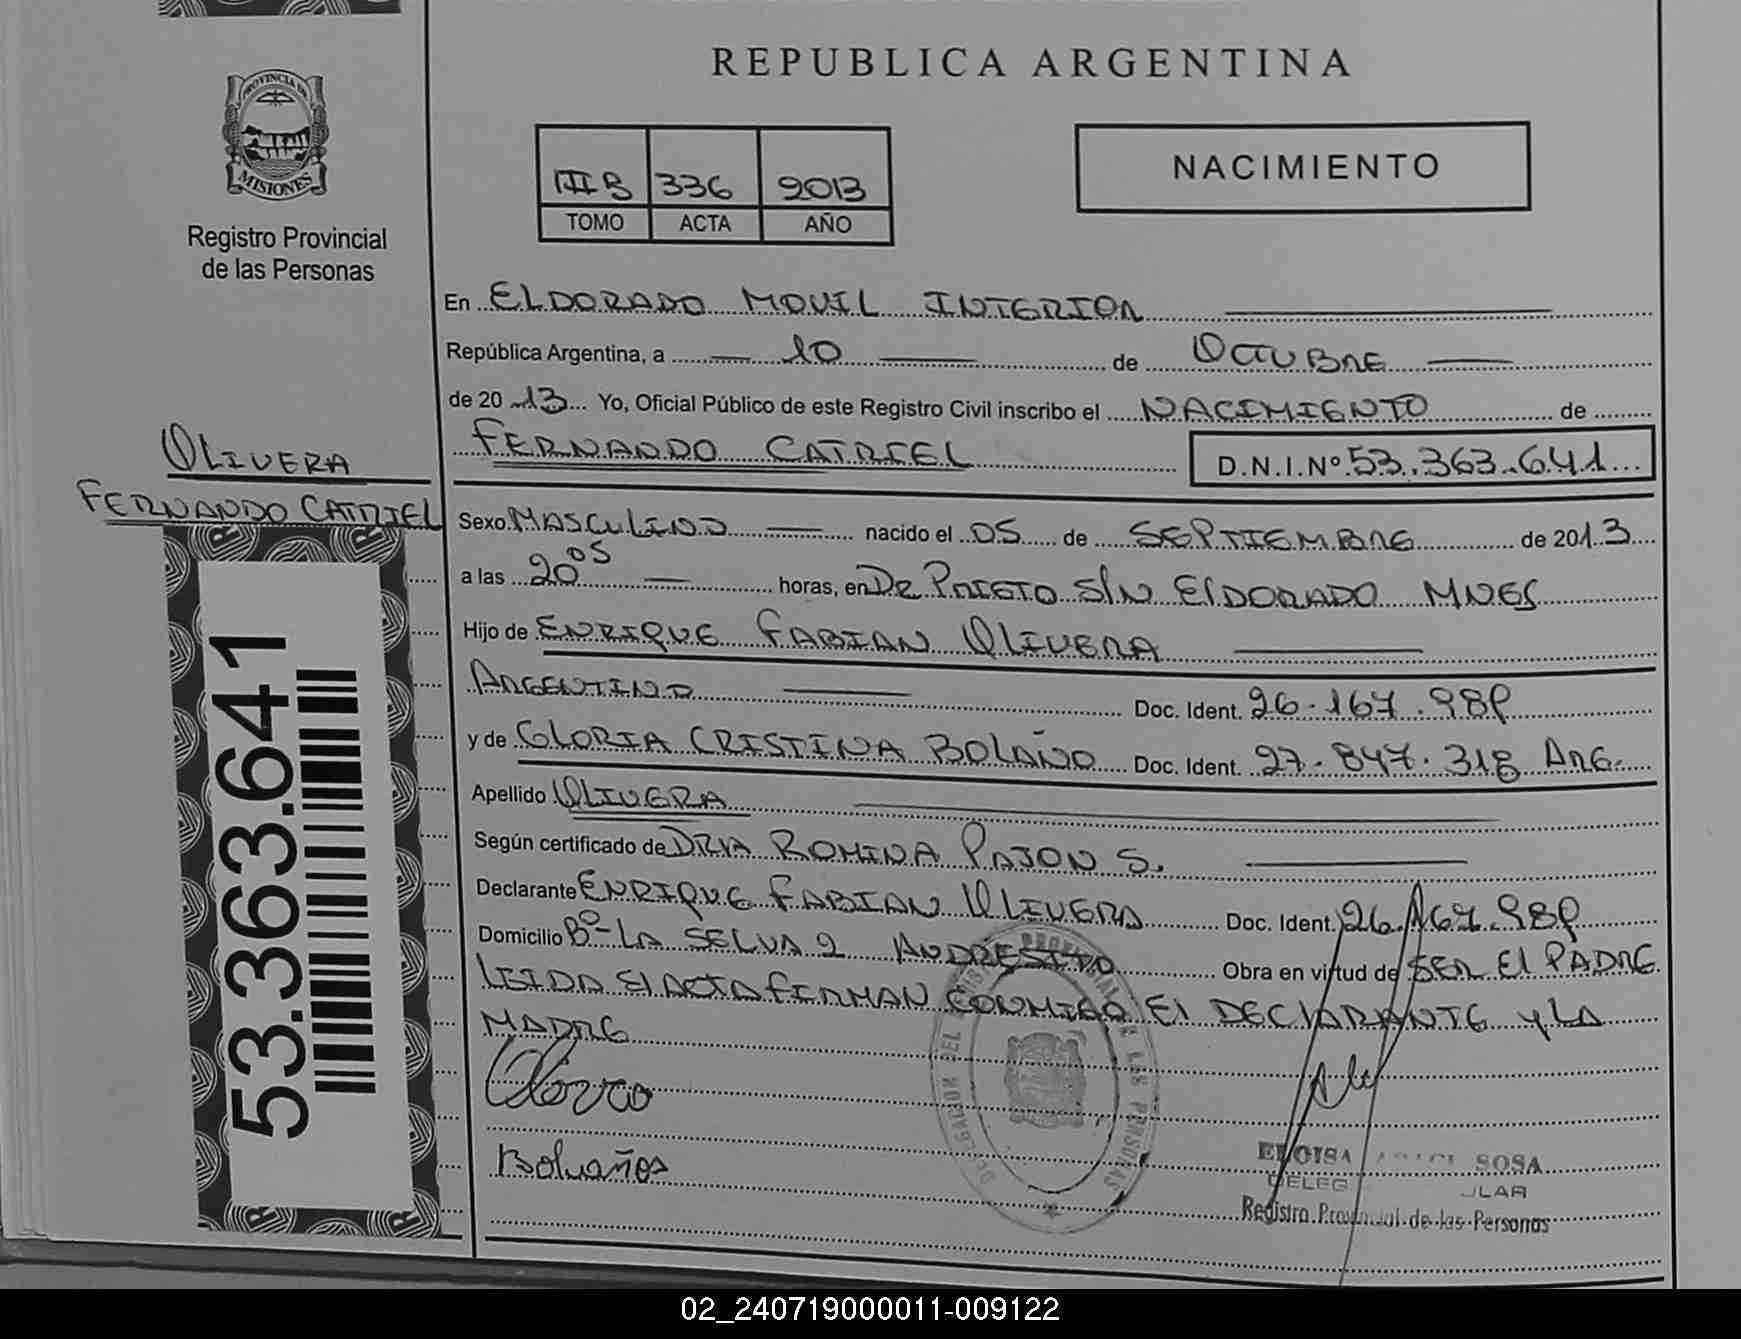 PROVINCIA DE
MISIONES
Registro Provincial
de las Personas
REPUBLICA ARGENTINA
III B 336 2013
TOMO ACTA AÑO
NACIMIENTO
En ELDORADO MOVIL INTERIOR
República Argentina, a 10 de OCTUBRE
de 2013 Yo, Oficial Público de este Registro Civil inscribo el NACIMIENTO de
FERNANDO CATRIEL D.N.I.Nº 53.363.641
OLIVERA
FERNANDO CATRIEL
53.363.641
Sexo MASCULINO nacido el 05 de SEPTIEMBRE de 2013
a las 20 05 horas, en DR PRIETO S/N ElDORADO MNES
Hijo de ENRIQUE FABIAN OLIVERA
ARGENTINO Doc. Ident. 26.167.989
y de GLORIA CRISTINA BOLAÑO Doc. Ident. 27.847.318 ARG.
Apellido OLIVERA
Según certificado de DRA ROMINA PAJON S.
Declarante ENRIQUE FABIAN OLIVERA Doc. Ident. 26.167.989
Domicilio Bº LA SELVA 2 ANDRESITO Obra en virtud de SER El PADRE
LEIDA El ACTA FIRMAN CONMIGO El DEClARANTE y LA
MADRE
Bolaños
ELOISA SOSA
Registro Provincial de las Personas
02_240719000011-009122